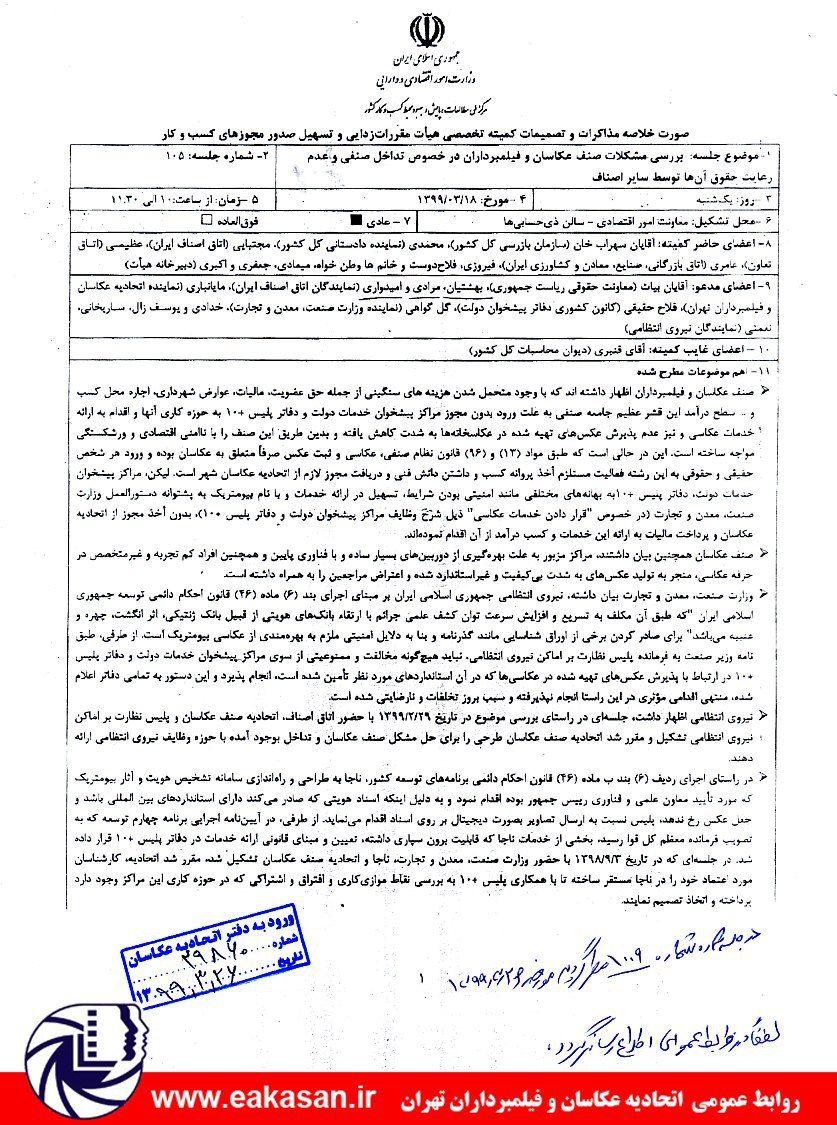 جمهوری اسلامی ایران
وزارت امور اقتصادی و دارایی
مرکز ملی مطالعات، پایش و بهبود محیط کسب و کار کشور
صورت خلاصه مذاکرات و تصمیمات کمیته تخصصی هیأت مقررات‌زدایی و تسهیل صدور مجوزهای کسب و کار
۱- موضوع جلسه: بررسی مشکلات صنف عکاسان و فیلمبرداران در خصوص تداخل صنفی و عدم رعایت حقوق آن‌ها توسط سایر اصناف
۲- شماره جلسه: ۱۰۵
۳- روز: یک‌شنبه
۴- مورخ: ۱۳۹۹/۰۳/۱۸
۵- زمان: از ساعت: ۱۰ الی ۱۱:۳۰
۶- محل تشکیل: معاونت امور اقتصادی - سالن ذی‌حسابی‌ها
۷- عادی
فوق‌العاده
۸- اعضای حاضر کمیته: آقایان سهراب خان (سازمان بازرسی کل کشور)، محمدی (نماینده دادستانی کل کشور)، مجتبایی (اتاق اصناف ایران)، عظیمی (اتاق
تعاون)، عامری (اتاق بازرگانی، صنایع، معادن و کشاورزی ایران)، فیروزی، فلاح‌دوست و خانم ها وطن خواه، میعادی، جعفری و اکبری (دبیرخانه هیأت)
۹- اعضای مدعو: آقایان بیات (معاونت حقوقی ریاست جمهوری)، بهشتیان، مرادی و امیدواری (نمایندگان اتاق اصناف ایران)، مایانباری (نماینده اتحادیه عکاسان
و فیلمبرداران تهران)، فلاح حقیقی (کانون کشوری دفاتر پیشخوان دولت)، گل گواهی (نماینده وزارت صنعت، معدن و تجارت)، خدادی و یوسف زال، ساریخانی،
نعمتی (نمایندگان نیروی انتظامی)
۱۰- اعضای غایب کمیته: آقای قنبری (دیوان محاسبات کل کشور)
۱۱- اهم موضوعات مطرح شده
صنف عکاسان و فیلمبرداران اظهار داشته اند که با وجود متحمل شدن هزینه های سنگینی از جمله حق عضویت، مالیات، عوارض شهرداری، اجاره محل کسب
و .. سطح درآمد این قشر عظیم جامعه صنفی به علت ورود بدون مجوز مراکز پیشخوان خدمات دولت و دفاتر پلیس +۱۰ به حوزه کاری آنها و اقدام به ارائه
خدمات عکاسی و نیز عدم پذیرش عکس‌های تهیه شده در عکاسخانه‌ها به شدت کاهش یافته و بدین طریق این صنف را با ناامنی اقتصادی و ورشکستگی
مواجه ساخته است. این در حالی است که طبق مواد (۱۳) و (۹۶) قانون نظام صنفی، عکاسی و ثبت عکس صرفاً متعلق به عکاسان بوده و ورود هر شخص
حقیقی و حقوقی به این رشته فعالیت مستلزم أخذ پروانه کسب و داشتن دانش فنی و دریافت مجوز لازم از اتحادیه عکاسان شهر است. لیکن، مراکز پیشخوان
خدمات دولت، دفاتر پلیس +۱۰ به بهانه‌های مختلفی مانند امنیتی بودن شرایط، تسهیل در ارائه خدمات و با نام بیومتریک به پشتوانه دستورالعمل وزارت
صنعت، معدن و تجارت (در خصوص "قرار دادن خدمات عکاسی" ذیل شرح وظایف مراکز پیشخوان دولت و دفاتر پلیس +۱۰)، بدون أخذ مجوز از اتحادیه
عکاسان و پرداخت مالیات به ارائه این خدمات و کسب درآمد از آن اقدام نموده‌اند.
صنف عکاسان همچنین بیان داشتند، مراکز مزبور به علت بهره‌گیری از دوربین‌های بسیار ساده و با فناوری پایین و همچنین افراد کم تجربه و غیرمتخصص در
حرفه عکاسی، منجر به تولید عکس‌های به شدت بی‌کیفیت و غیراستاندارد شده و اعتراض مراجعین را به همراه داشته است.
وزارت صنعت، معدن و تجارت بیان داشته، نیروی انتظامی جمهوری اسلامی ایران بر مبنای اجرای بند (۶) ماده (۴۶) قانون احکام دائمی توسعه جمهوری
اسلامی ایران "که طبق آن مکلف به تسریع و افزایش سرعت توان کشف علمی جرائم با ارتقاء بانک‌های هویتی از قبیل بانک ژنتیکی، اثر انگشت، چهره و
عنبیه می‌باشد" برای صادر کردن برخی از اوراق شناسایی مانند گذرنامه و بنا به دلایل امنیتی ملزم به بهره‌مندی از عکاسی بیومتریک است. از طرفی، طبق
نامه وزیر صنعت به فرمانده پلیس نظارت بر اماکن نیروی انتظامی، نباید هیچ‌گونه مخالفت و ممنوعیتی از سوی مراکز پیشخوان خدمات دولت و دفاتر پلیس
+۱۰ در ارتباط با پذیرش عکس‌های تهیه شده در عکاسی‌ها که در آن استانداردهای مورد نظر تأمین شده است، انجام پذیرد و این دستور به تمامی دفاتر اعلام
شده، منتهی اقدامی مؤثری در این راستا انجام نپذیرفته و سبب بروز تخلفات و نارضایتی شده است.
نیروی انتظامی اظهار داشت، جلسه‌ای در راستای بررسی موضوع در تاریخ ۱۳۹۹/۲/۲۹ با حضور اتاق اصناف، اتحادیه صنف عکاسان و پلیس نظارت بر اماکن
نیروی انتظامی تشکیل و مقرر شد اتحادیه صنف عکاسان طرحی را برای حل مشکل صنف عکاسان و تداخل بوجود آمده با حوزه وظایف نیروی انتظامی ارائه
دهند.
در راستای اجرای ردیف (۶) بند ب ماده (۴۶) قانون احکام دائمی برنامه‌های توسعه کشور، ناجا به طراحی و راه‌اندازی سامانه تشخیص هویت و آثار بیومتریک
که مورد تأیید معاون علمی و فناوری رییس جمهور بوده اقدام نمود و به دلیل اینکه اسناد هویتی که صادر می‌کند دارای استانداردهای بین المللی باشد و
جعل عکس رخ ندهد، پلیس نسبت به ارسال تصاویر بصورت دیجیتال بر روی اسناد اقدام می‌نماید. از طرفی، در آیین‌نامه اجرایی برنامه چهارم توسعه که به
تصویب فرمانده معظم کل قوا رسید، بخشی از خدمات ناجا که قابلیت برون سپاری داشته، تعیین و مبنای قانونی ارائه خدمات در دفاتر پلیس +۱۰ قرار داده
شد. در جلسه‌ای که در تاریخ ۱۳۹۸/۹/۳ با حضور وزارت صنعت، معدن و تجارت، ناجا و اتحادیه صنف عکاسان تشکیل شد، مقرر شد اتحادیه، کارشناسان
مورد اعتماد خود را در ناجا مستقر ساخته تا با همکاری پلیس +۱۰ به بررسی نقاط موازی‌کاری و افتراق و اشتراکی که در حوزه کاری این مراکز وجود دارد
پرداخته و اتخاذ تصمیم نمایند.
ورود به دفتر اتحادیه عکاسان
شماره ۳۹۸۶۰
تاریخ ۱۳۹۹,۳,۲۶
۱
شماره ۱۰۰۹
لطفاً در روابط عمومی اطلاع رسانی گردد.
روابط عمومی اتحادیه عکاسان و فیلمبرداران تهران www.eakasan.ir